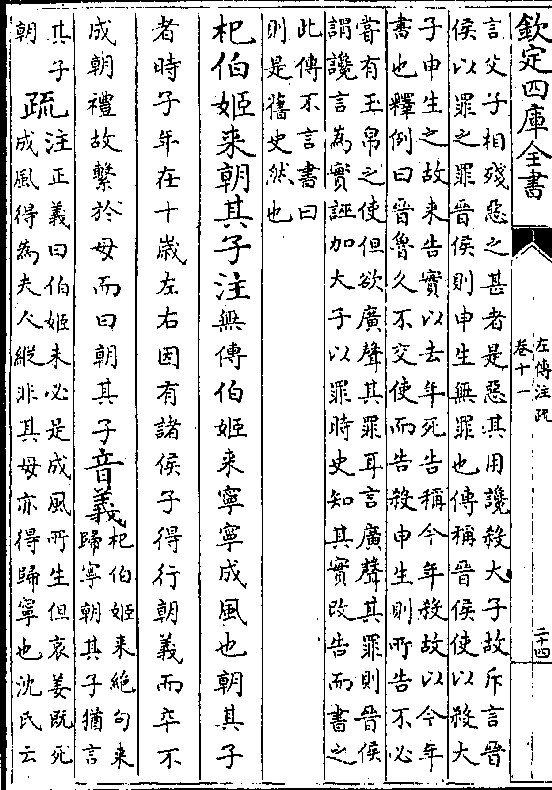 欽定四庫全書
左傳注疏
卷十一
二十四
言父子相殘惡之甚者是惡其用讒殺大子故斥言晉
侯以罪之罪晉侯則申生無罪也傳稱晉侯使以殺大
子申生之故来告實以去年死告稱今年殺故以今年
書也釋例曰晉魯久不交使而告殺申生則所告不必
嘗有玉帛之使但欲廣聲其罪耳言廣聲其罪則晉侯
謂讒言為實誣加大子以罪時史知其實改告而書之
此傳不言書曰
則是舊史然也
杞伯姬来朝其子注無傳伯姬来寧寧成風也朝其子
者時子年在十歳左右因有諸侯子得行朝義而卒不
成朝禮故繫於母而曰朝其子音義杞伯姬来絶句来
歸寧朝其子猶言
其子
朝
疏注正義曰伯姬未必是成風所生但哀姜既死
成風得為夫人縱非其母亦得歸寧也沈氏云